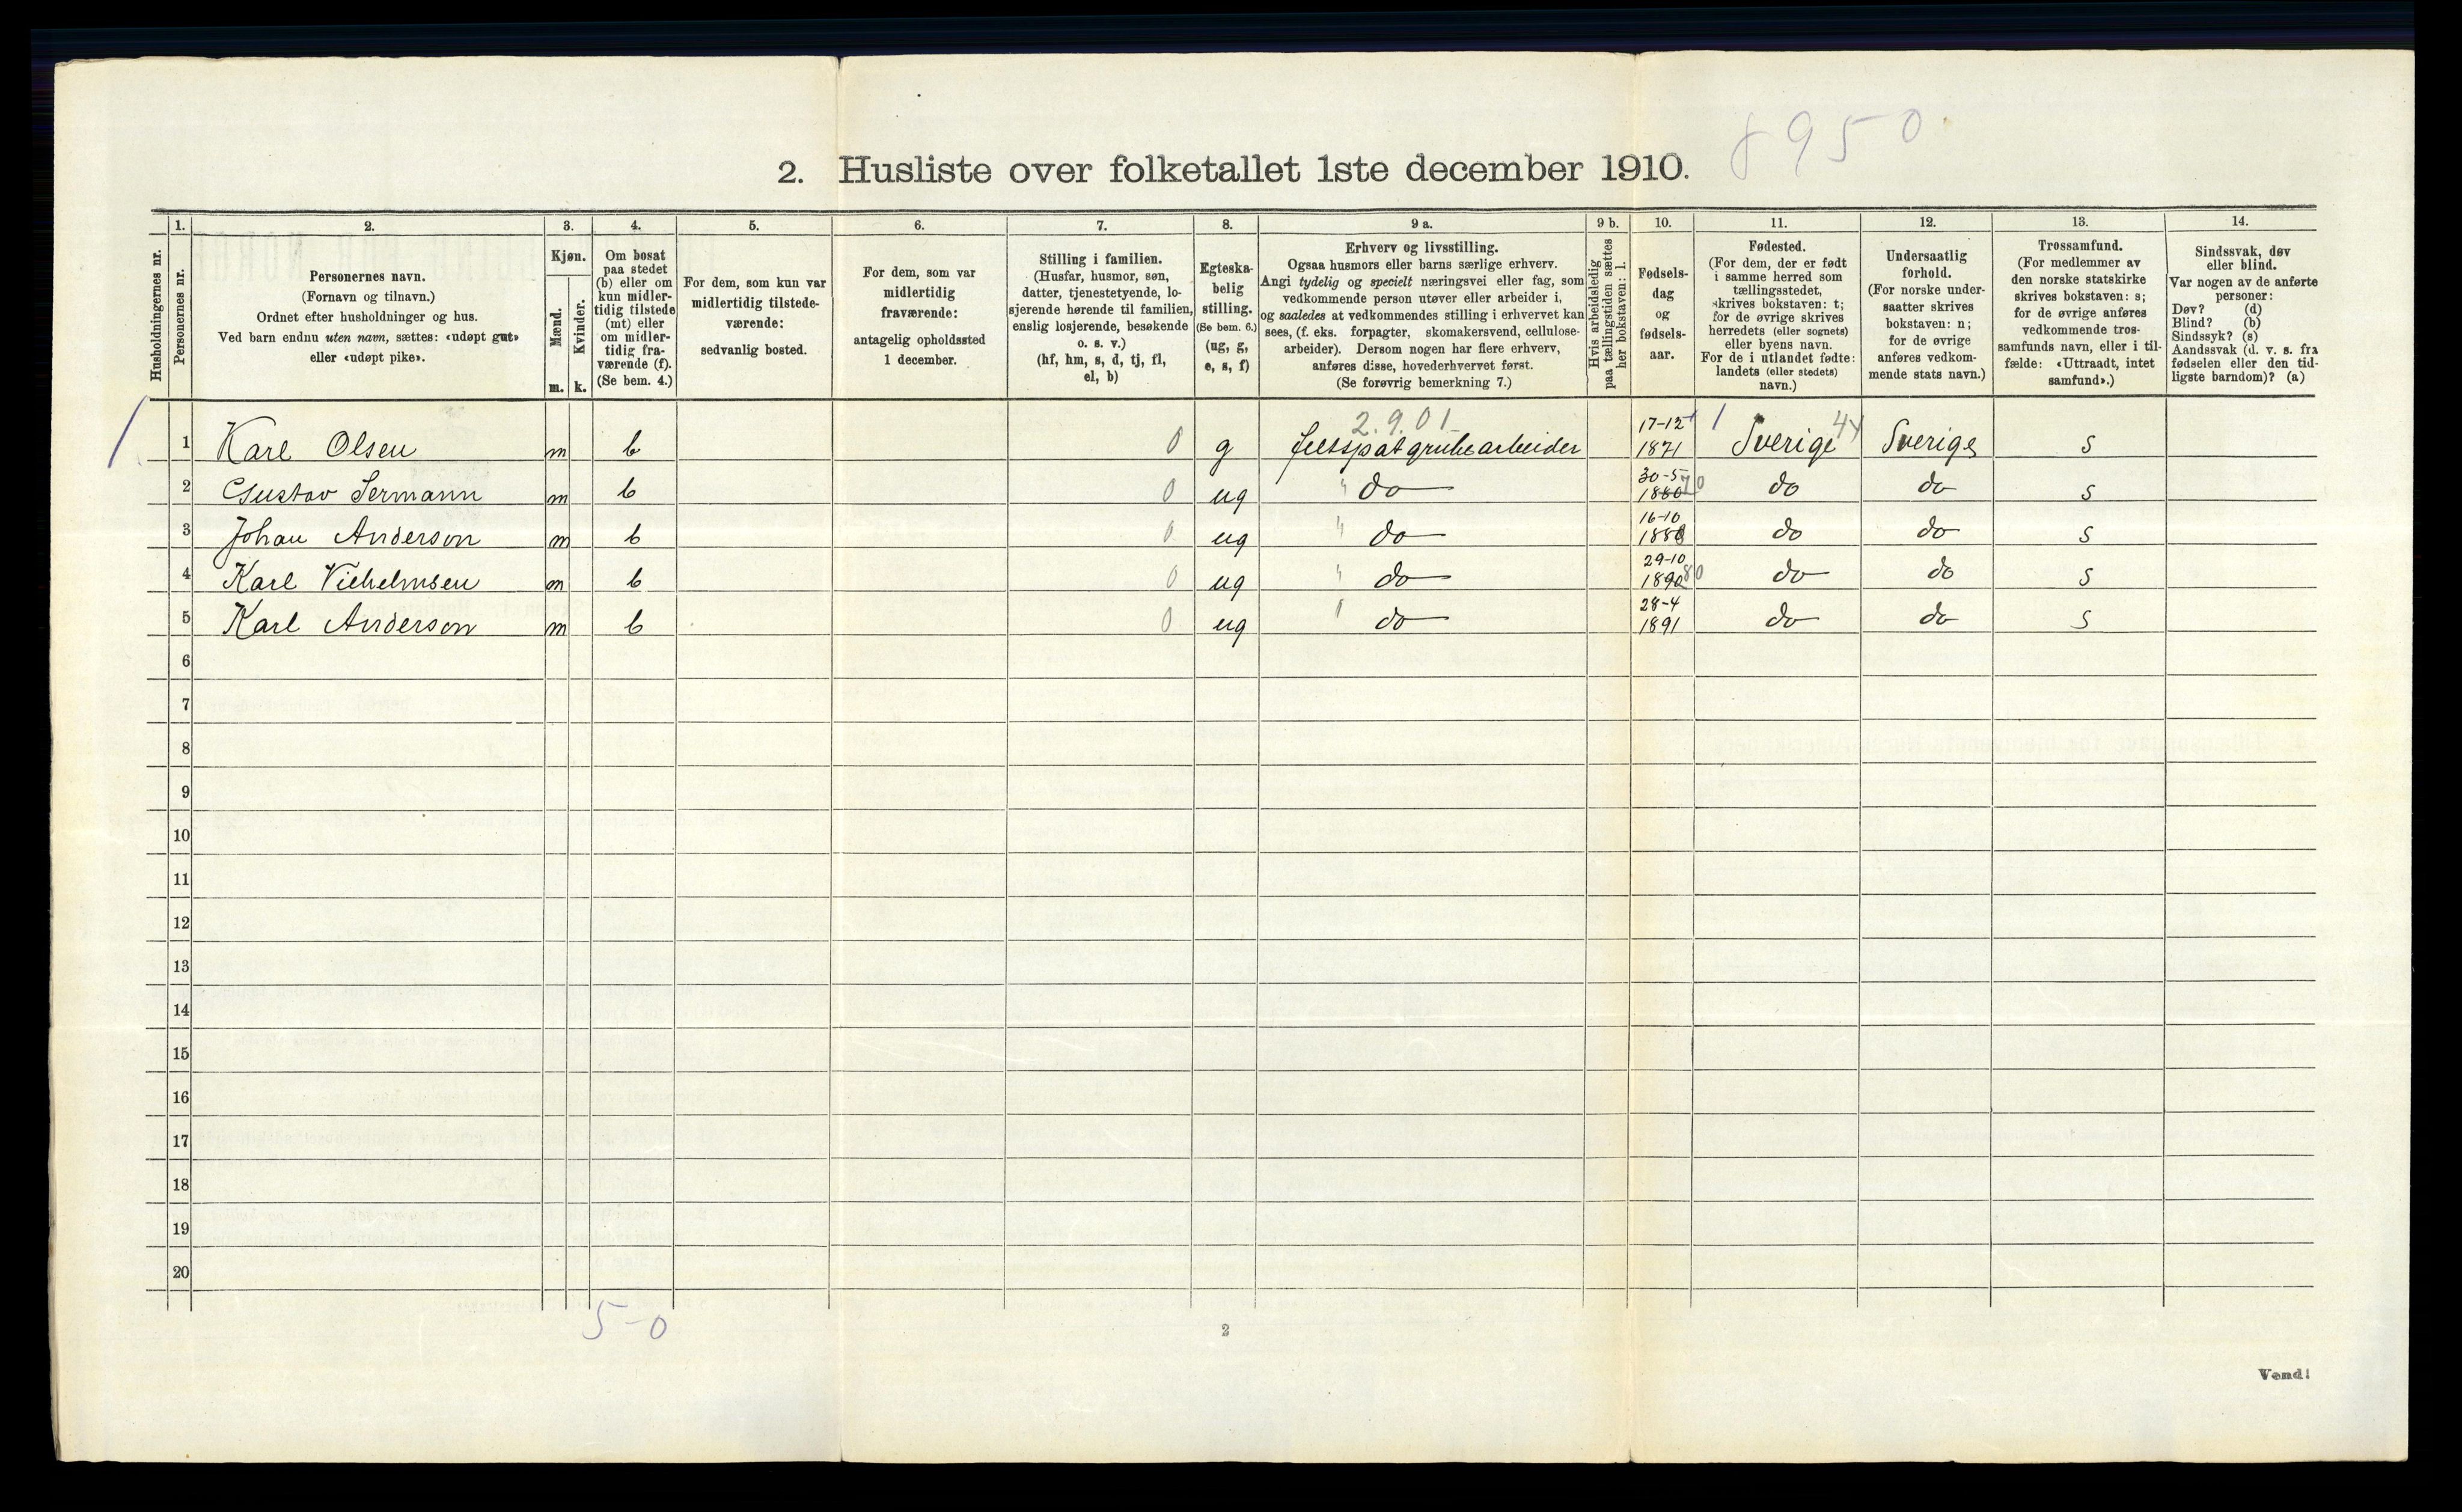 8950
2. Husliste over folketallet 1ste december 1910.
Husholdningernes nr.
1. Personernes nr.
2. Personernes navn.
(Fornavn og tilnavn.)
Ordnet efter husholdninger og hus.
Ved barn endnu uten navn, sættes: «udøpt gut»
eller «udøpt pike».
3. Kjøn.
Mænd. m.
Kvinder. k.
4. Om bosat
paa stedet
(b) eller om
kun midler-
tidig tilstede
(mt) eller
om midler-
tidig fra-
værende (f).
(Se bem. 4.)
5. For dem, som kun var
midlertidig tilstede-
værende:
sedvanlig bosted.
6. For dem, som var
midlertidig
fraværende:
antagelig opholdssted
1 december.
7. Stilling i familien.
(Husfar, husmor, søn,
datter, tjenestetyende, lo-
sjerende hørende til familien,
enslig losjerende, besøkende
o. s. v.)
(hf, hm, s, d, tj, fl,
el, b)
8. Egteska-
belig
stilling.
(Se bem. 6.)
(ug, g,
e, s, f)
9 a. Erhverv og livsstilling.
Ogsaa husmors eller barns særlige erhverv.
Angi tydelig og specielt næringsvei eller fag, som
vedkommende person utøver eller arbeider i,
og saaledes at vedkommendes stilling i erhvervet kan
sees, (f. eks. forpagter, skomakersvend, cellulose-
arbeider). Dersom nogen har flere erhverv,
anføres disse, hovederhvervet først.
(Se forøvrig bemerkning 7.)
9 b. Hvis arbeidsledig
paa tællingstiden sættes
her bokstaven: l.
10. Fødsels-
dag
og
fødsels-
aar.
11. Fødested.
(For dem, der er født
i samme herred som
tællingsstedet,
skrives bokstaven: t;
for de øvrige skrives
herredets (eller sognets)
eller byens navn.
For de i utlandet fødte:
landets (eller stedets)
navn.)
12. Undersaatlig
forhold.
(For norske under-
saatter skrives
bokstaven: n;
for de øvrige
anføres vedkom-
mende stats navn.)
13. Trossamfund.
(For medlemmer av
den norske statskirke
skrives bokstaven: s;
for de øvrige anføres
vedkommende tros-
samfunds navn, eller i til-
fælde: «Uttraadt, intet
samfund».)
14. Sindssvak, døv
eller blind.
Var nogen av de anførte
personer:
Døv? (d)
Blind? (b)
Sindssyk? (s)
Aandssvak (d. v. s. fra
fødselen eller den tid-
ligste barndom)? (a)
2.9.01
1 Karl Olsen m b 0 g feltspatgrubearbeider 17-12 1871 Sverige 44 Sverige s
2 Gustav Sermann m b 0 ug " do 30-5 1880 70 do do s
3 Johan Anderson m b 0 ug " do 16-10 1888 do do s
4 Karl Vilhelmsen m b 0 ug " do 29-10 1890 80 do do s
5 Karl Anderson m b 0 ug " do 28-4 1891 do do s
6
7
8
9
10
11
12
13
14
15
16
17
18
19
20
5-0
2
Vend!